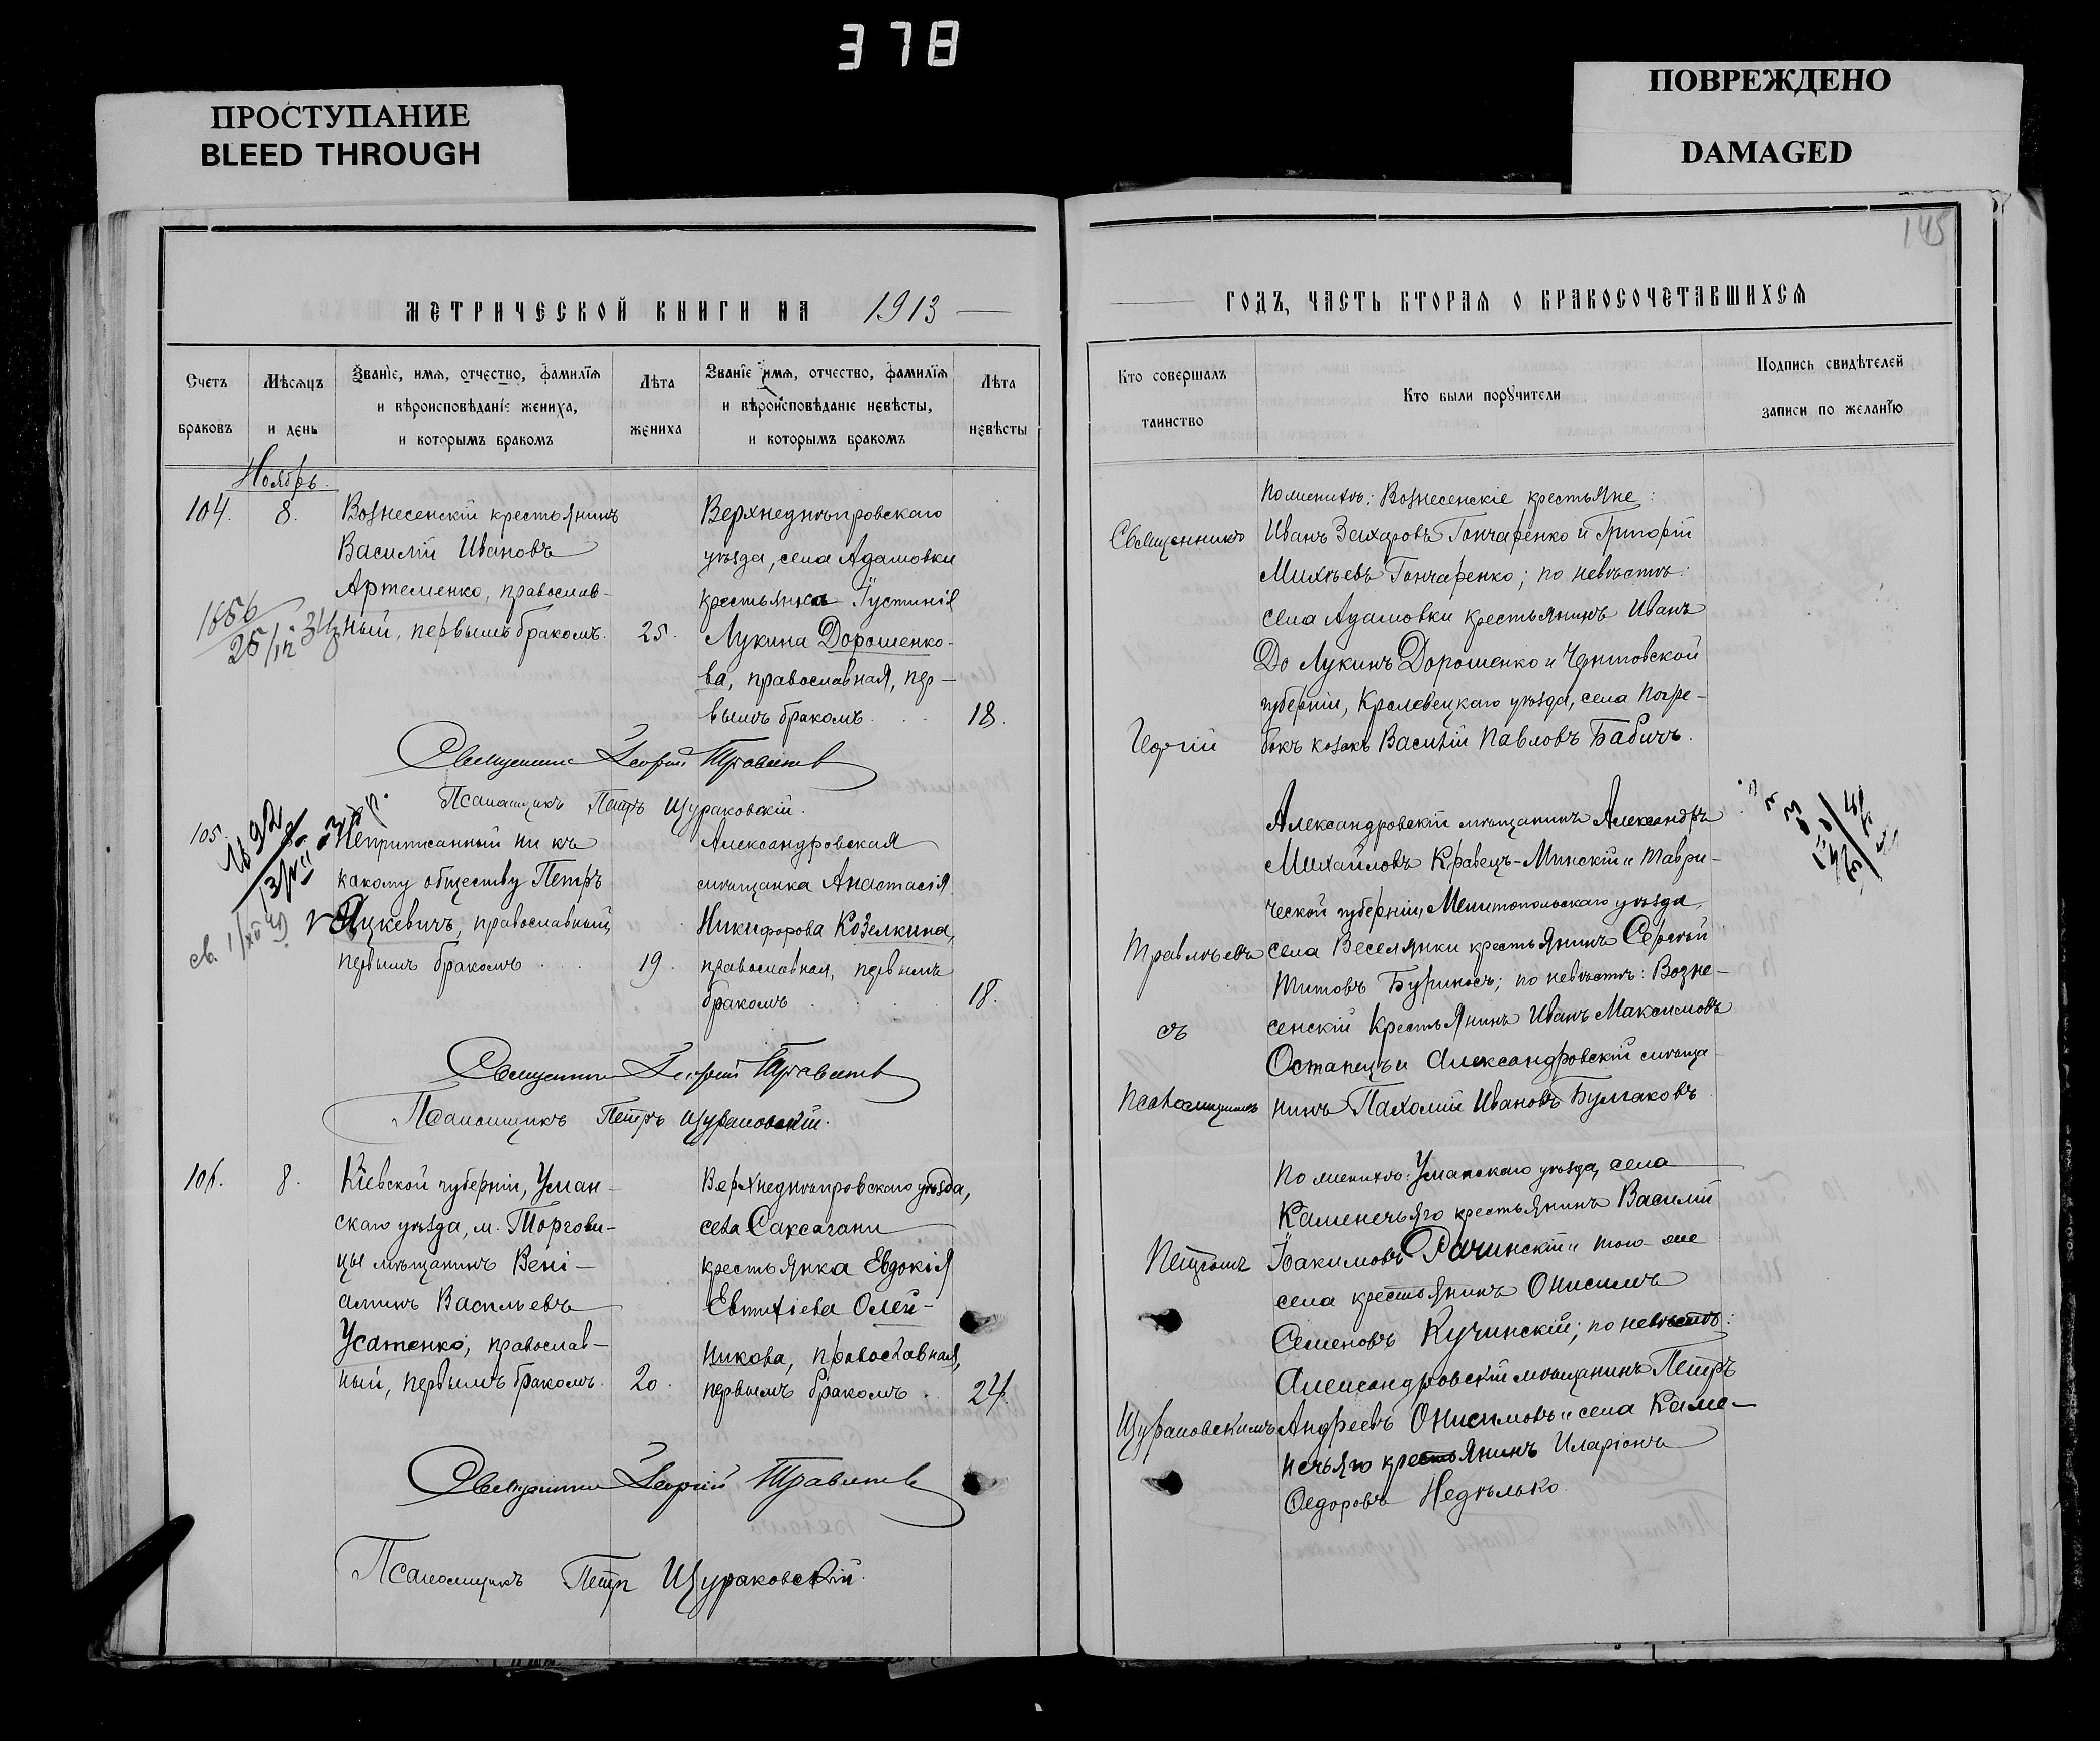 378
ПРОСТУПАНИЕ
BLEED THROUGH
ПОВРЕЖДЕНО
DAMAGED
145
МЕТРИЧЕСКОЙ КНИГИ НА 1913
Счетъ
браковъ
Мѣсяцъ
и день
Званіе, имя, отчество, фамилія
и вѣроисповѣданіе жениха,
и которымъ бракомъ
Лѣта
жениха
Званіе имя, отчество, фамилія
и вѣроисповѣданіе невѣсты,
и которымъ бракомъ
Лѣта
невѣсты
Ноябрь.
104. 8.
Вознесенскій крестьянинъ
Василій Ивановъ
Артеменко, православ-
ный, первымъ бракомъ. 25.
Верхнеднѣпровскаго
уѣзда, села Адамовки
крестьянка Іустинія
Лукина Дорошенко-
ва, православная, пер-
вымъ бракомъ. 18.
Священникъ Георгій Травлѣевъ
Псаломщикъ Петръ Щураковскій.
105.
Неприписанный ни къ
какому обществу Петръ
Яцкевичъ, православный,
первымъ бракомъ 19.
Александровская
мѣщанка Анастасія
Никифорова Козелкина,
православная, первымъ
бракомъ 18.
Священникъ Георгій Травлѣевъ
Псаломщикъ Петръ Щураковскій.
106. 8.
Кіевской губерніи, Уман-
скаго уѣзда, м. Торгови-
цы мѣщанинъ Вені-
аминъ Васильевъ
Усатенко, православ-
ный, первымъ бракомъ. 20.
Верхнеднѣпровскаго уѣзда,
села Саксагани
крестьянка Евдокія
Евтихіева Олей-
никова, православная,
первымъ бракомъ. 24.
Священникъ Георгій Травлѣевъ
Псаломщикъ Петръ Щураковскій.
ГОДЪ, ЧАСТЬ ВТОРАЯ О БРАКОСОЧЕТАВШИХСЯ
Кто совершалъ
таинство
Кто были поручители
Подпись свидѣтелей
записи по желанію
Священникъ
Георгій
Травлѣевъ
съ
Псаломщикомъ
Петромъ
Щураковскимъ
По женихѣ: Вознесенскіе крестьяне:
Иванъ Захаровъ Гончаренко и Григорій
Михѣевъ Гончаренко; по невѣстѣ:
села Адамовки крестьянинъ Иванъ
До Лукинъ Дорошенко и Черниговской
губерніи, Кролевецкаго уѣзда, села Погре-
бокъ козакъ Василій Павловъ Бабичъ.
Александровскій мѣщанинъ Александръ
Михайловъ Кравецъ-Минскій и Таври-
ческой губерніи, Мелитопольскаго уѣзда,
села Веселянки крестьянинъ Сергѣй
Титовъ Буриносъ; по невѣстѣ: Возне-
сенскій крестьянинъ Иванъ Максимовъ
Останецъ и Александровскій мѣща-
нинъ Пахомій Ивановъ Булгаковъ
По женихѣ: Уманскаго уѣзда, села
Каменечьяго крестьянинъ Василій
Іоакимовъ Рачинскій и того же
села крестьянинъ Онисимъ
Семеновъ Кучинскій; по невѣстѣ:
Александровскій мѣщанинъ Петръ
Андреевъ Онисимовъ и села Каме-
нечьяго крестьянинъ Иларіонъ
Ѳедоровъ Недѣлько.